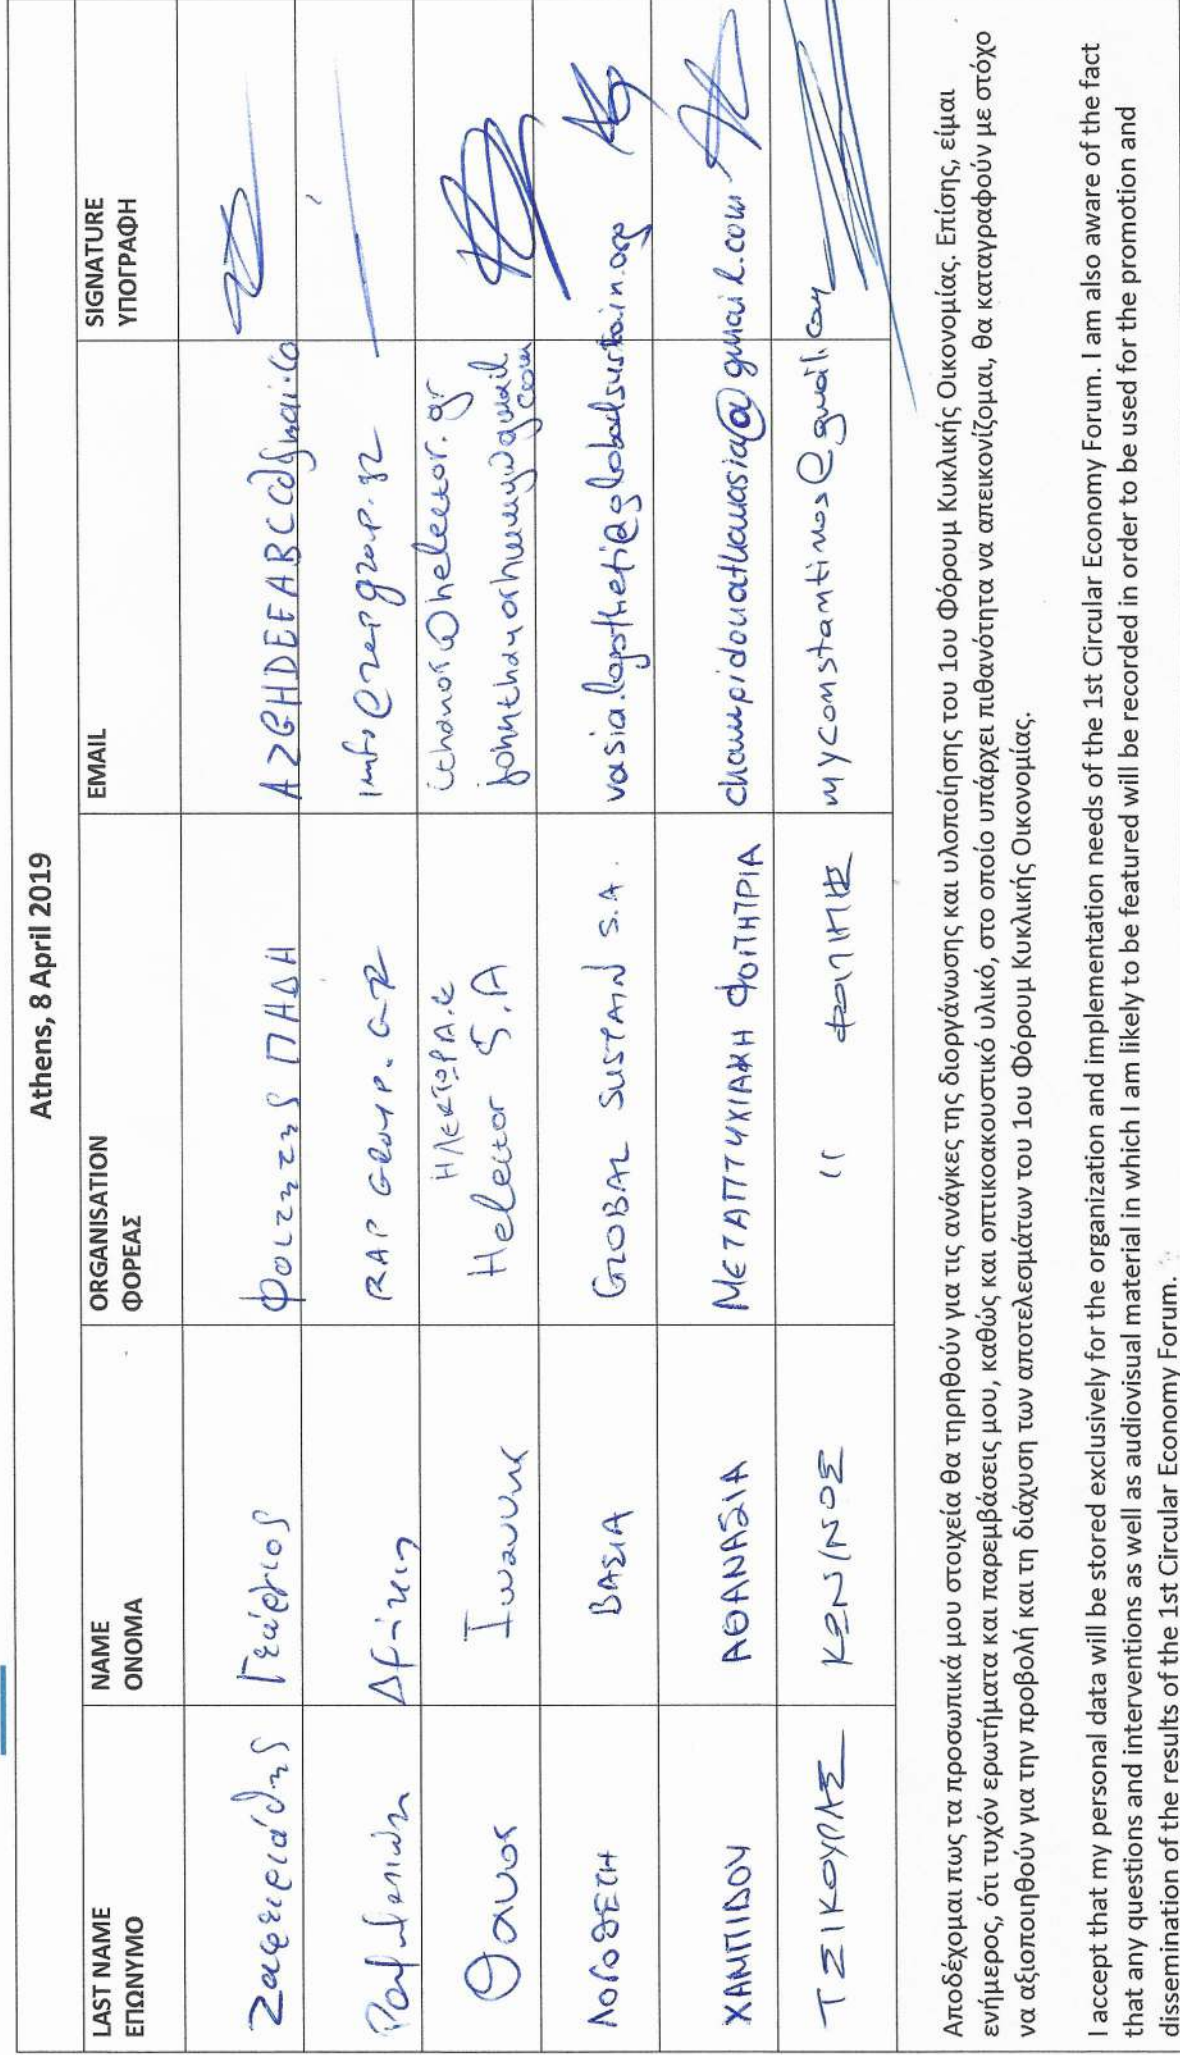 Athens, 8 April 2019
LAST NAME
ΕΠΩΝΥΜΟ
NAME
ΟΝΟΜΑ
ORGANISATION
ΦΟΡΕΑΣ
EMAIL
SIGNATURE
ΥΠΟΓΡΑΦΗ
Γεώργιος
ΠΑΔΑ
RAP GROUP. GR
info@rapgroup.gr
Θανος
Ιωαννης
ΗΛΕΚΤΩΡ Α.Ε
Helector S.A
ithanos@helector.gr
ΛΟΓΟΘΕΤΗ
ΒΑΣΙΑ
GLOBAL SUSTAIN S.A.
vasia.logotheti@globalsustain.org
ΧΑΜΠΙΔΟΥ
ΑΘΑΝΑΣΙΑ
ΜΕΤΑΠΤΥΧΙΑΚΗ ΦΟΙΤΗΤΡΙΑ
champidouathanasia@gmail.com
ΤΣΙΚΟΥΡΑΣ
ΚΩΝ/ΝΟΣ
" ΦΟΙΤΗΤΗΣ
myconstantinos@gmail.com
Αποδέχομαι πως τα προσωπικά μου στοιχεία θα τηρηθούν για τις ανάγκες της διοργάνωσης και υλοποίησης του 1ου Φόρουμ Κυκλικής Οικονομίας. Επίσης, είμαι
ενήμερος, ότι τυχόν ερωτήματα και παρεμβάσεις μου, καθώς και οπτικοακουστικό υλικό, στο οποίο υπάρχει πιθανότητα να απεικονίζομαι, θα καταγραφούν με στόχο
να αξιοποιηθούν για την προβολή και τη διάχυση των αποτελεσμάτων του 1ου Φόρουμ Κυκλικής Οικονομίας.
I accept that my personal data will be stored exclusively for the organization and implementation needs of the 1st Circular Economy Forum. I am also aware of the fact
that any questions and interventions as well as audiovisual material in which I am likely to be featured will be recorded in order to be used for the promotion and
dissemination of the results of the 1st Circular Economy Forum.